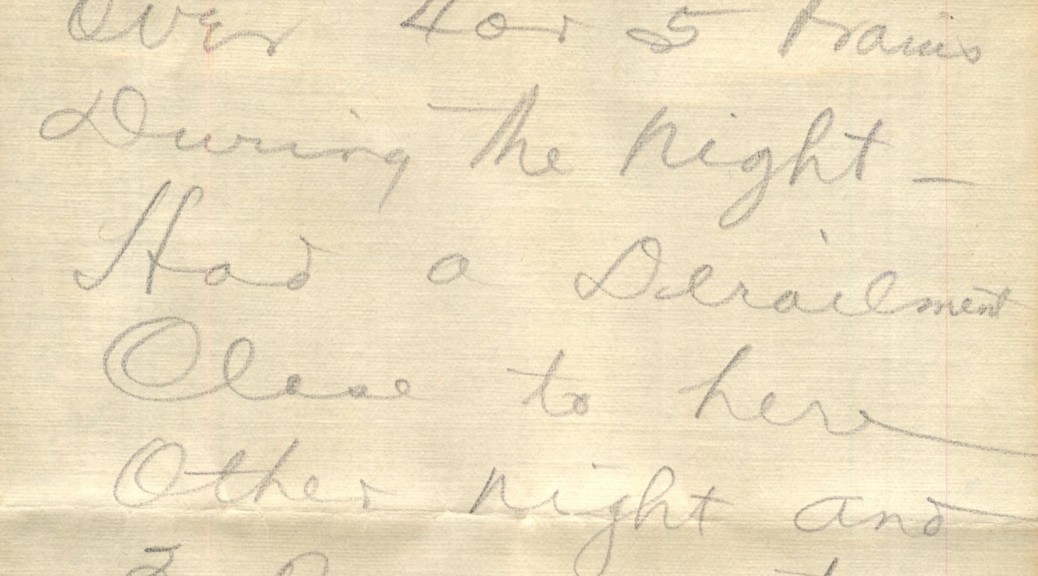 Over 4 or 5 trains
During the night —
Had a Derailment
Close to here
Other night and